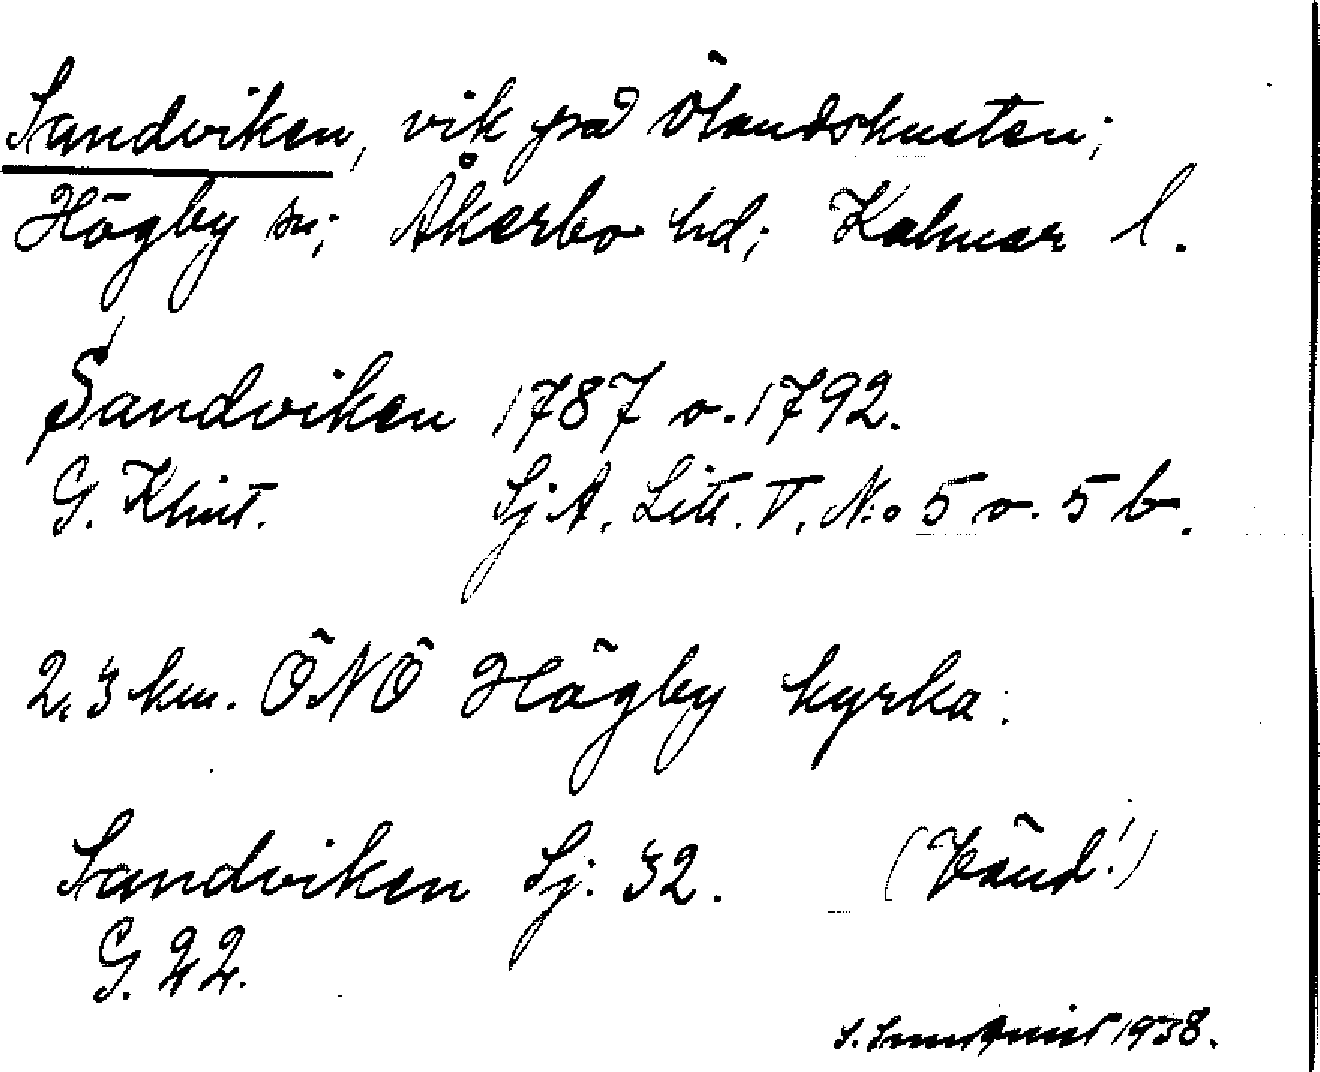 Sandviken, vik på Ölandskusten;
Högby sn; Åkerbo hd; Kalmar l.
Sandviken 1787 o. 1792.
G. Klint. Sj A. Litt. V. N:o 5 o. 5 b.
2,3 km. ÖNÖ Högby kyrka.
Sandviken Sj. 32. (Vänd!)
G. 22.
1938.